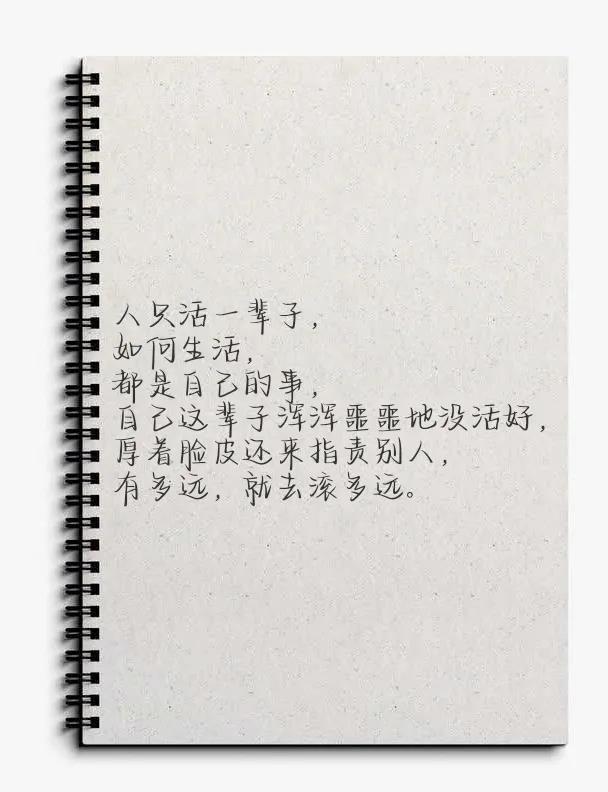 人只活一辈子，
如何生活，
都是自己的事，
自己这辈子浑浑噩噩地没活好，
厚着脸皮还来指责别人，
有多远，就去滚多远。